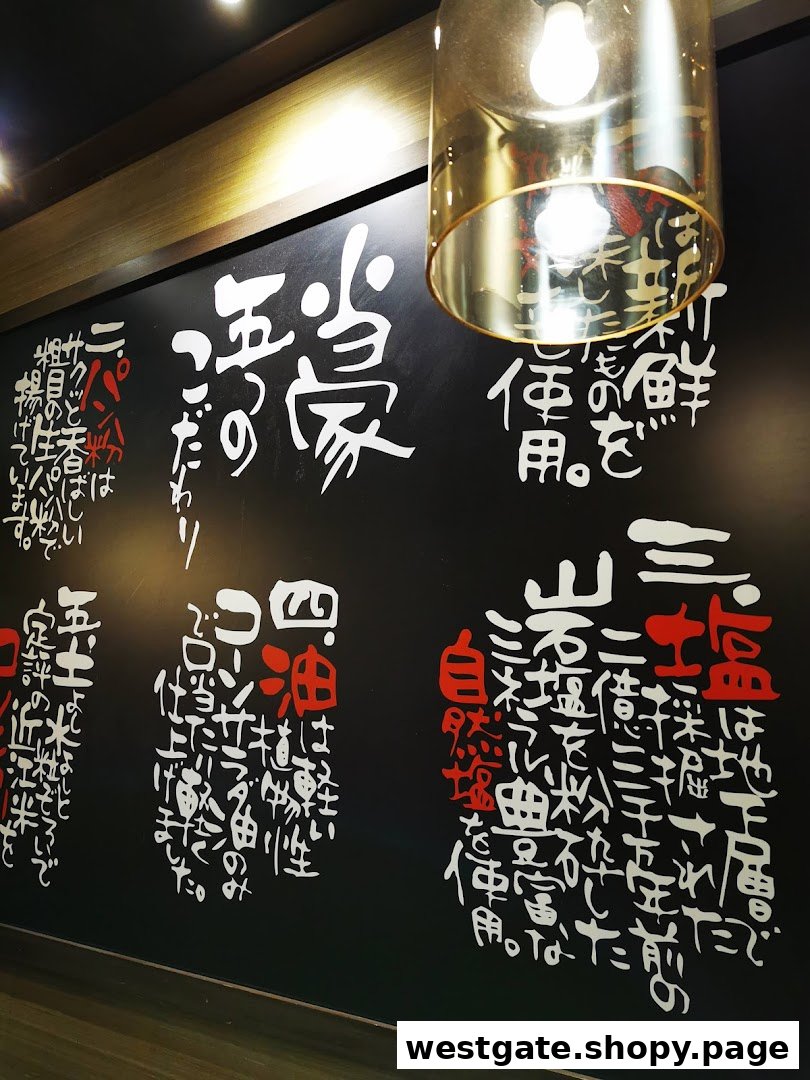 は新鮮
味したものを
使用。
当家
五つの
こだわり
二.パン粉は
サクッと香ばしい
粗目の生パン粉で
揚げています。
三.塩は地下層で
採掘された
二億三千万年前の
山岩塩を粉砕した
ミネラル豊富な
自然塩を使用。
四.油は軽い
植物性
コーンサラダ油のみ
で口当たり軽く
仕上げました。
五.土よし
水よしと
粒ぞろいで
定評の近江米
を
westgate.shopy.page